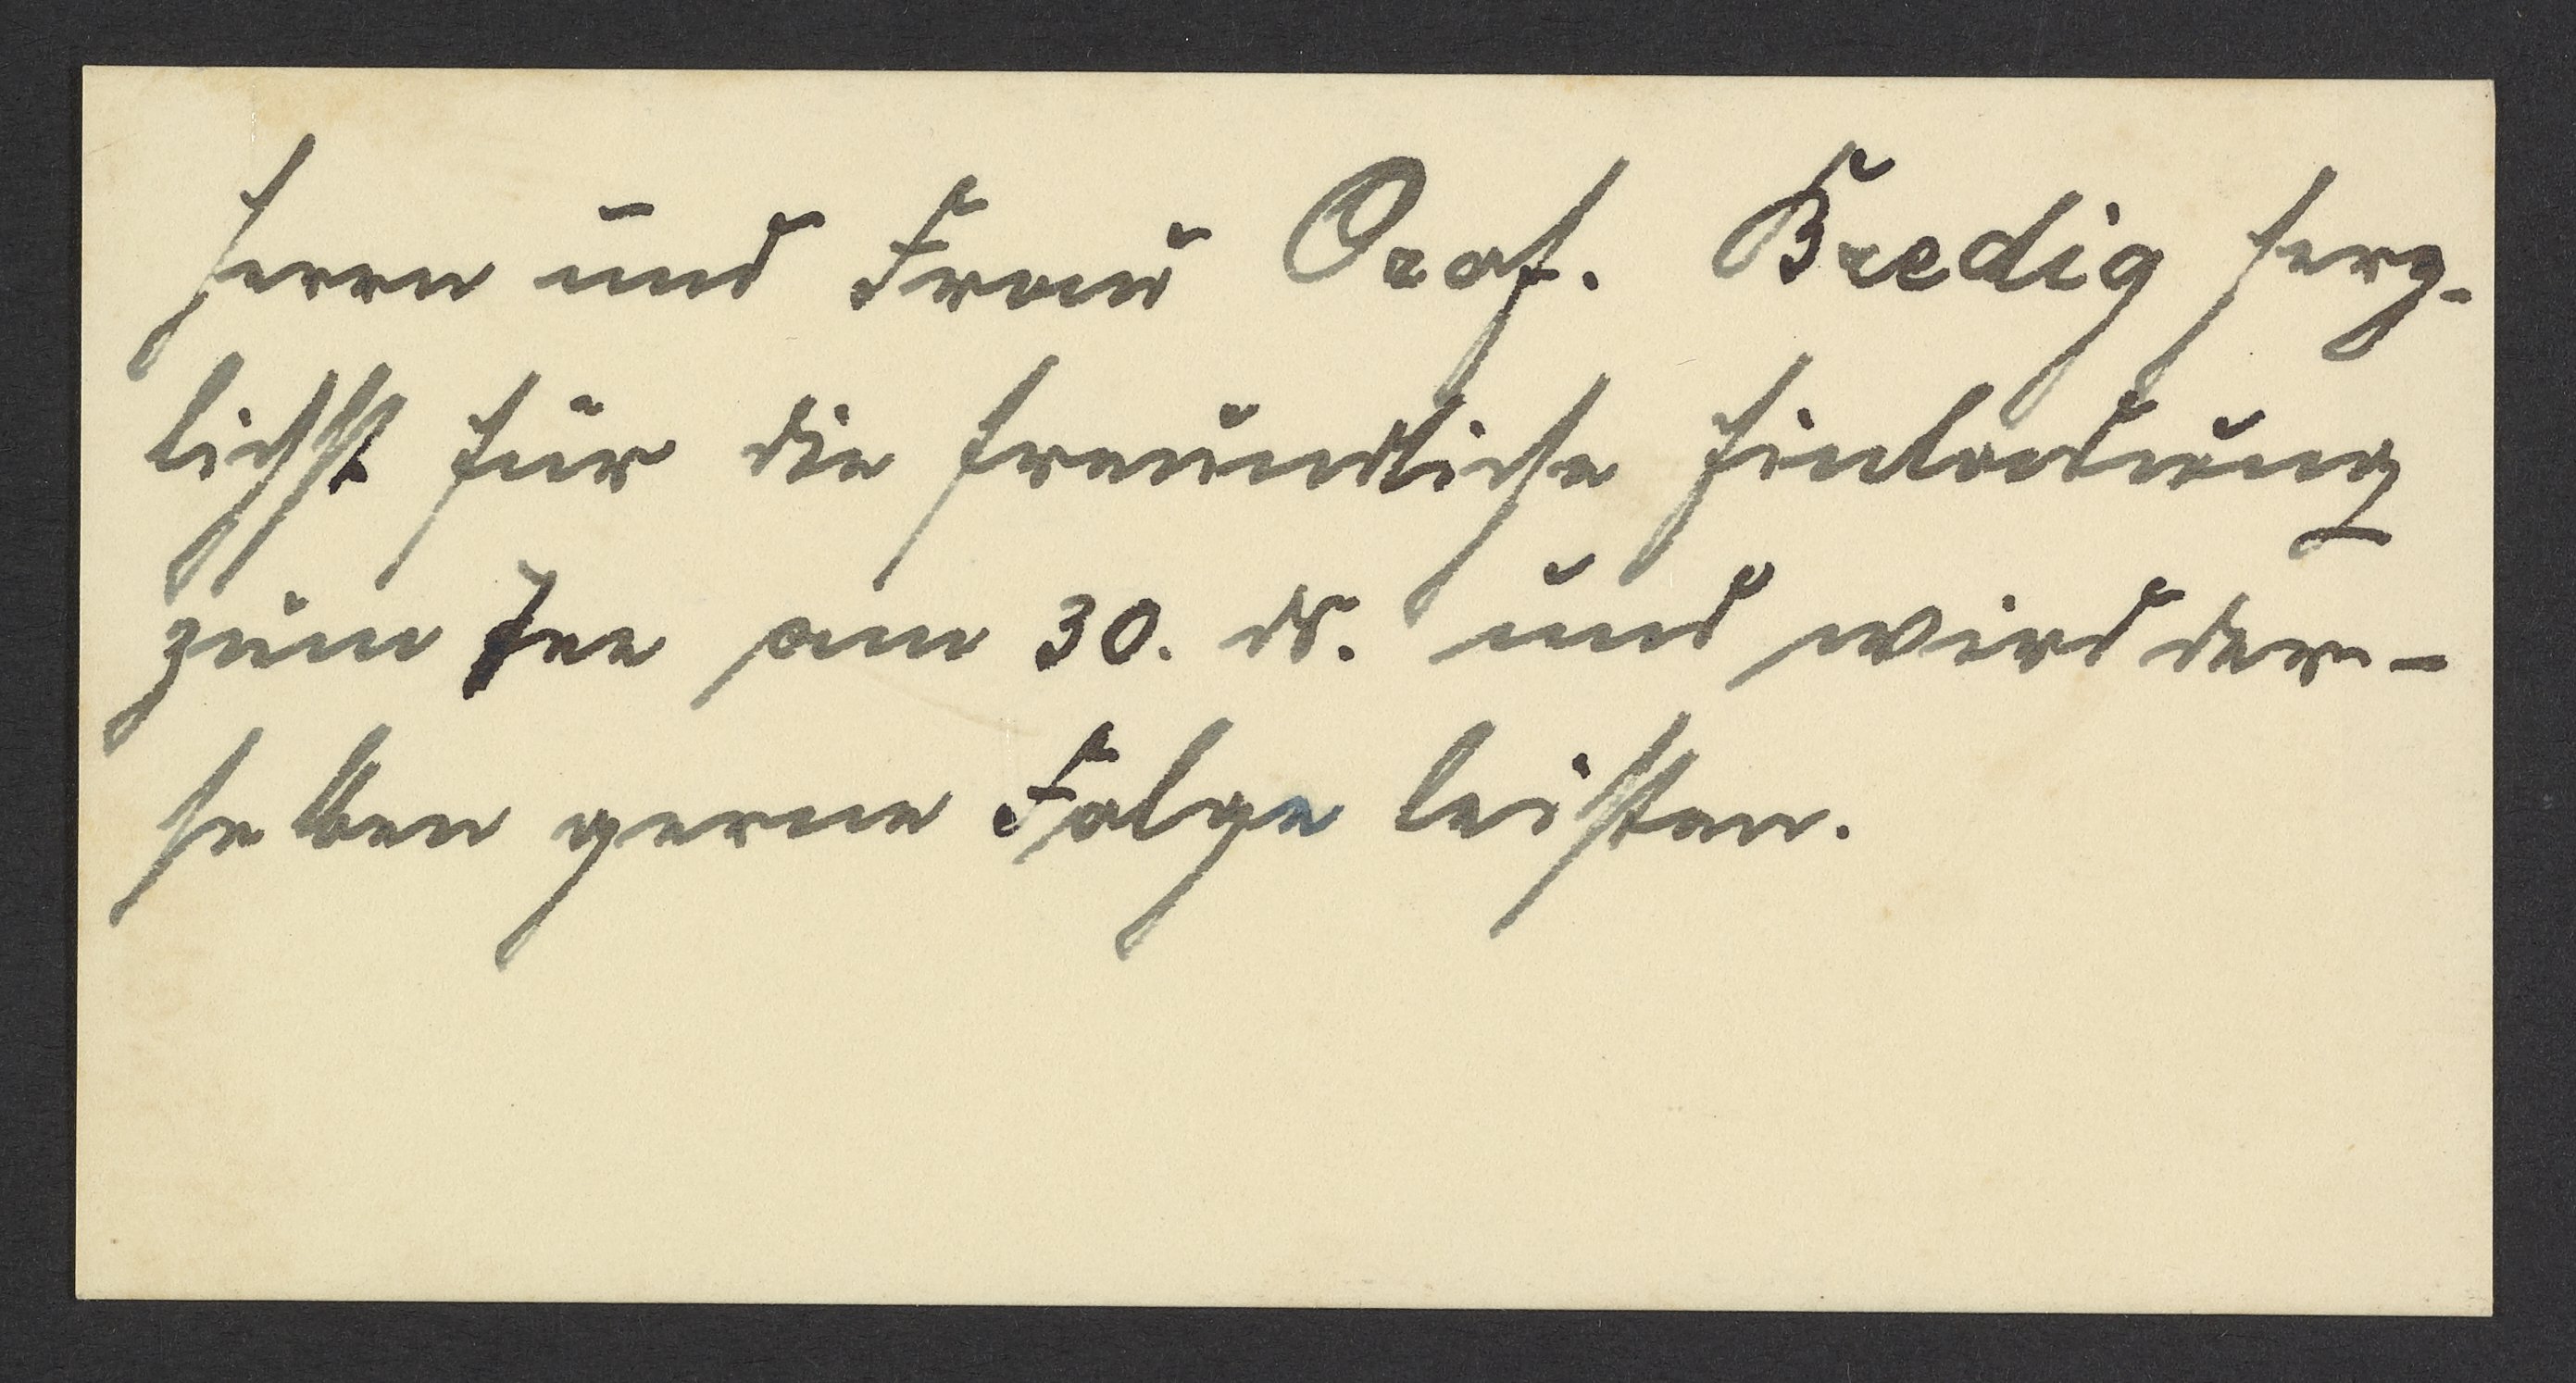 Herrn und Frau Prof. Bredig herz-
lichst für die freundliche Einladung
zum Tee am 30. ds. und wird der-
selben gerne Folge leisten.